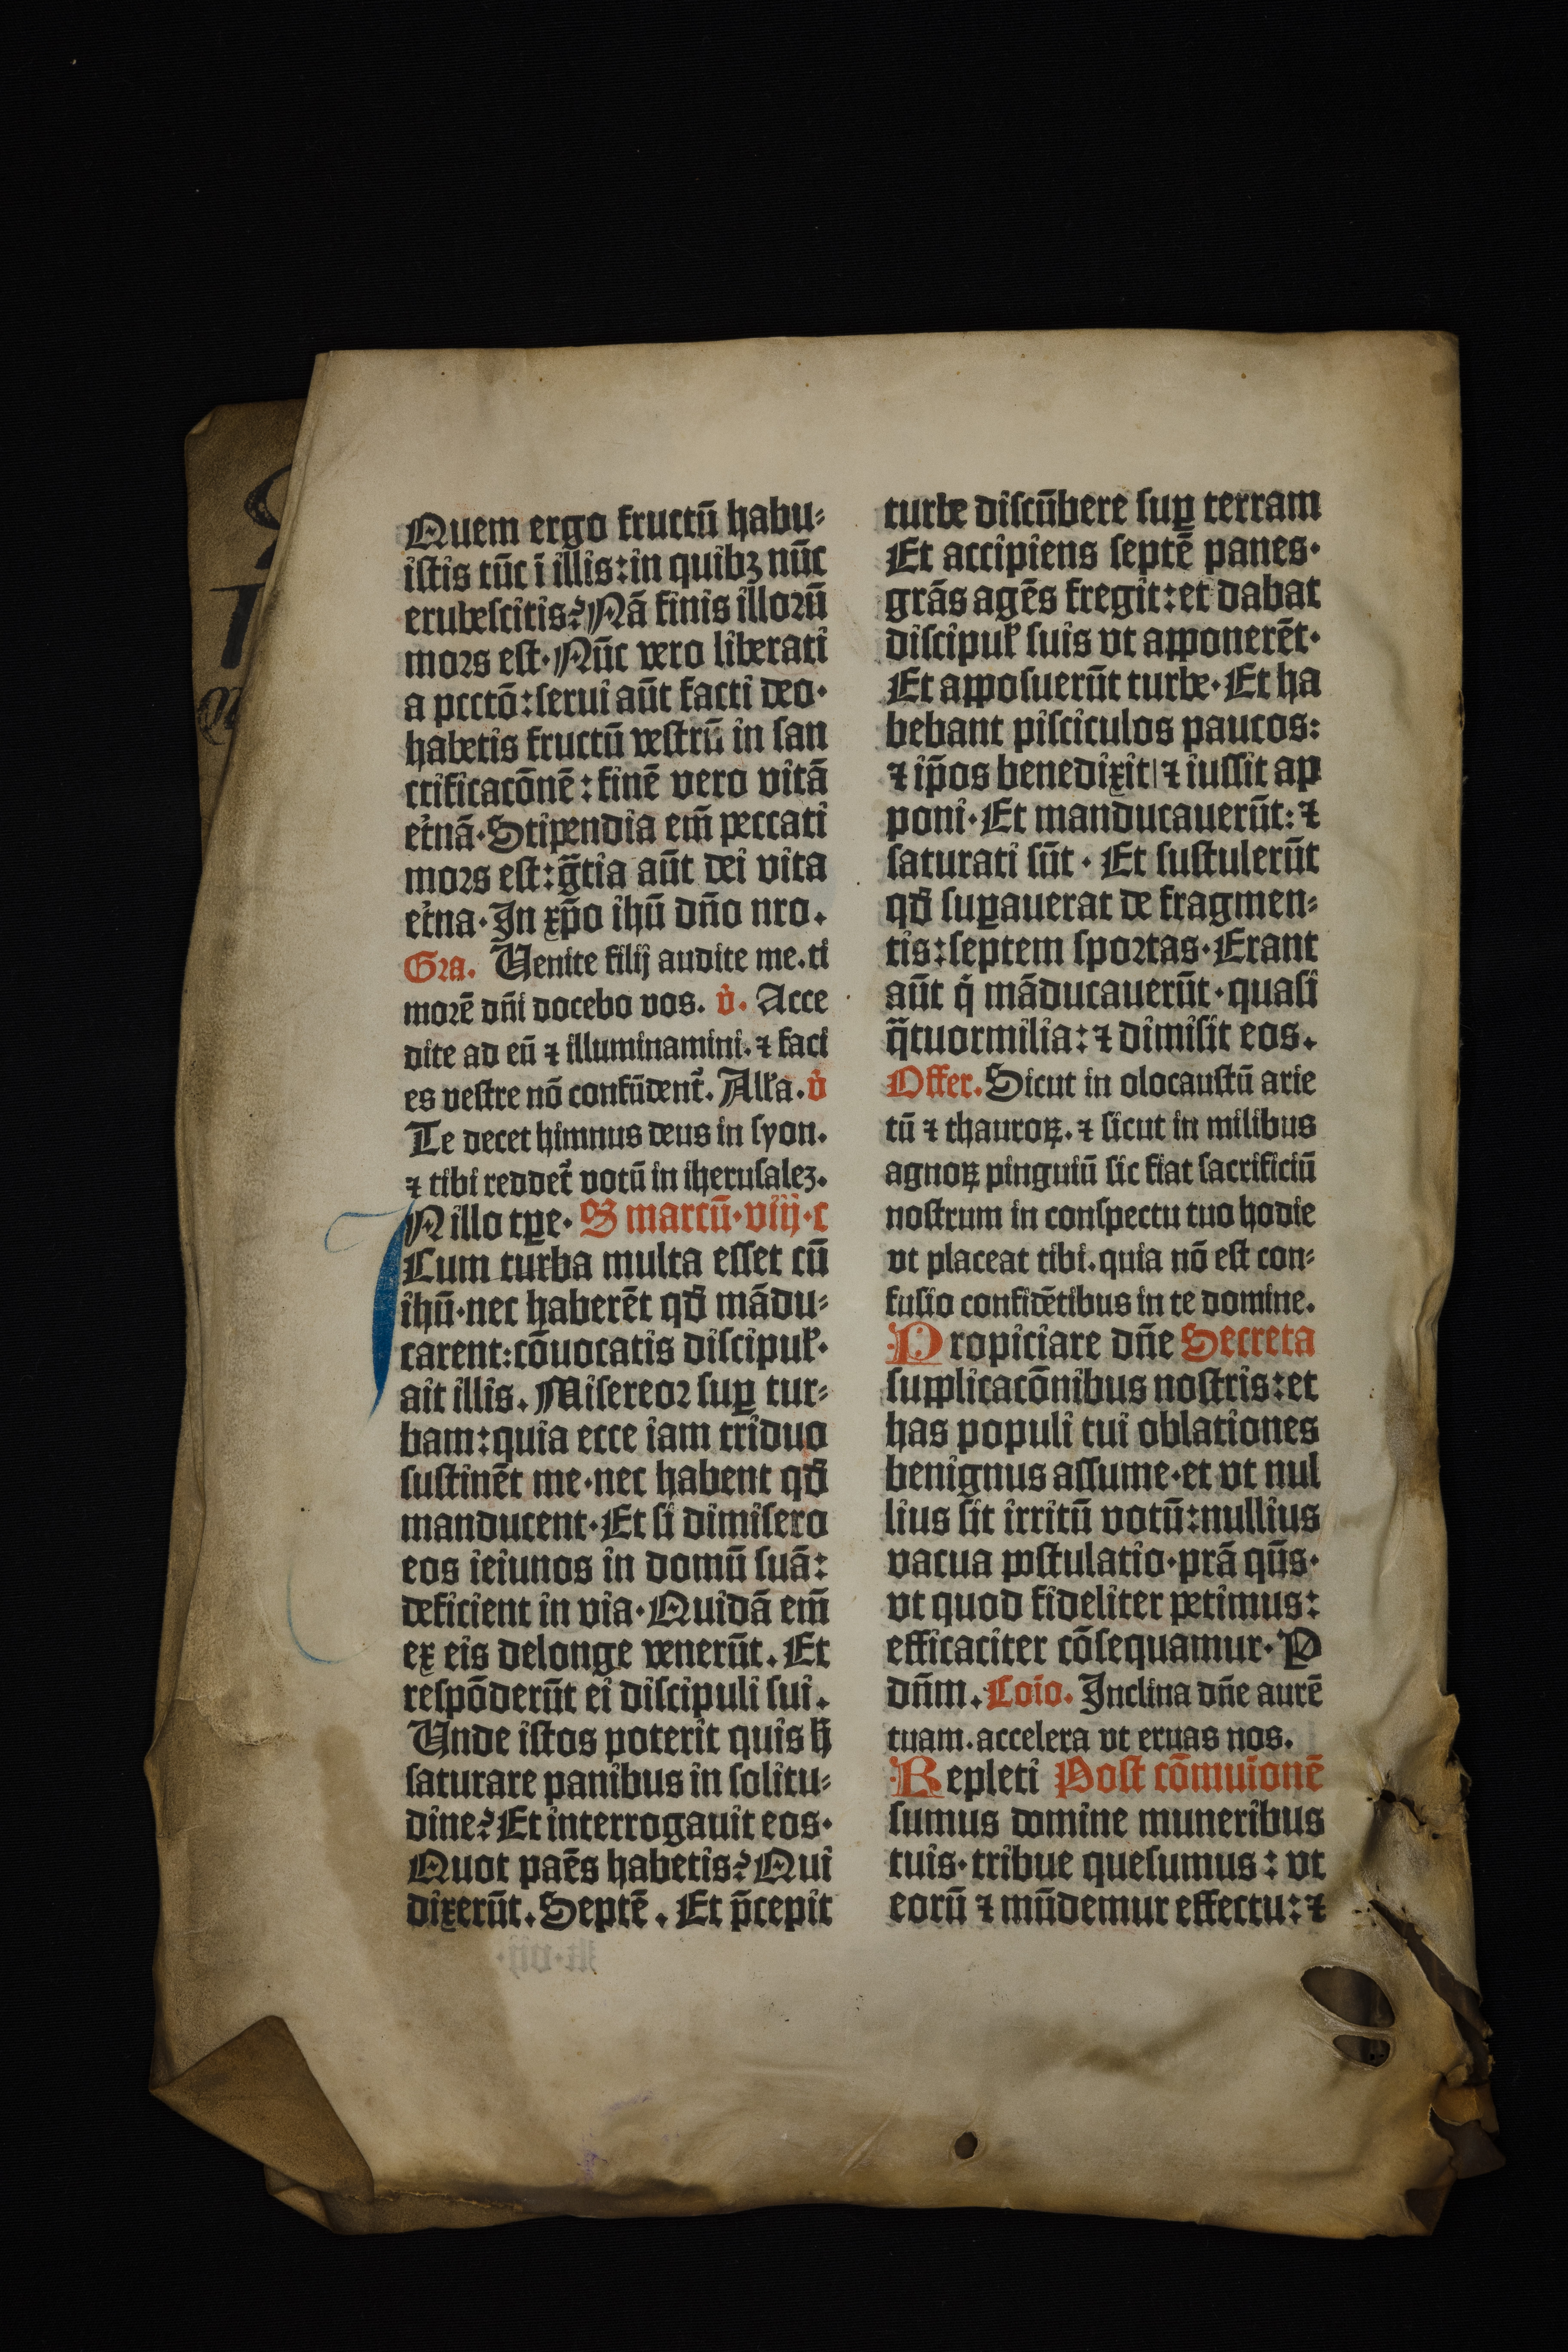 Quem ergo fructū habu⸗
istis tūc ī illis:in quibꝫ nūc
erubescitis?Nā finis illoꝛū
moꝛs est·Nūc vero liberati
a pcctō:serui aūt facti deo·
habetis fructū vestrū in san
ctificacōnē:finē vero vitā
et̉nā·Stipendia em̄ peccati
moꝛs est:gr̄tia aūt dei vita
et̉na·In xp̄o ihū dn̄o nro.
Gꝛa. Uenite filij audite me.ti
moꝛē dn̄i docebo vos. v̉. Acce
dite ad eū ⁊ illuminamini.⁊ faci
es vestre nō confūdent᷑. All'a.v̉
Te decet himnus deus in syon.
⁊ tibi reddet᷑ votū in iherusaleꝫ.
IN illo tꝑe· S marcū·viij·c
Cum turba multa esset cū
ihū·nec haberēt qd̄ mādu⸗
carent:cōuocatis discipul'·
ait illis. Misereoꝛ suꝑ tur⸗
bam:quia ecce iam triduo
sustinēt me·nec habent qd̄
manducent·Et si dimisero
eos ieiunos in domū suā:
deficient in via·Quidā em̄
ex eis delonge venerūt. Et
respōderūt ei discipuli sui.
Unde istos poterit quis h̄
saturare panibus in solitu⸗
dine?Et interrogauit eos·
Quot paēs habetis?Qui
dixerūt. Septē. Et p̄cepit
turbe discūbere suꝑ terram
Et accipiens septē panes·
grās agēs fregit:et dabat
discipul' suis vt apponerēt·
Et apposuerūt turbe·Et ha
bebant pisciculos paucos:
⁊ ip̄os benedixit|⁊ iussit ap
poni·Et manducauerūt:⁊
saturati sūt· Et sustulerūt
qd̄ suꝑauerat de fragmen⸗
tis:septem spoꝛtas·Erant
aūt q̄ māducauerūt·quasi
q̄tuormilia:⁊ dimisit eos.
Offer.Sicut in olocaustū arie
tū ⁊ thauroꝝ.⁊ sicut in milibus
agnoꝝ pinguiū sic fiat sacrificiū
nostrum in conspectu tuo hodie
vt placeat tibi.quia nō est con⸗
fusio confidētibus in te domine.
Propiciare dn̄e Secreta
supplicacōnibus nostris:et
has populi tui oblationes
benignus assume·et vt nul
lius sit irritū votū:nullius
vacua postulatio·prā qūs·
vt quod fideliter petimus:
efficaciter cōsequamur·P
dn̄m.Coīo. Inclina dn̄e aurē
tuam.accelera vt eruas nos.
Repleti Post cōmuionē
sumus domine muneribus
tuis·tribue quesumus: vt
eorū ⁊ mūdemur effectu:⁊